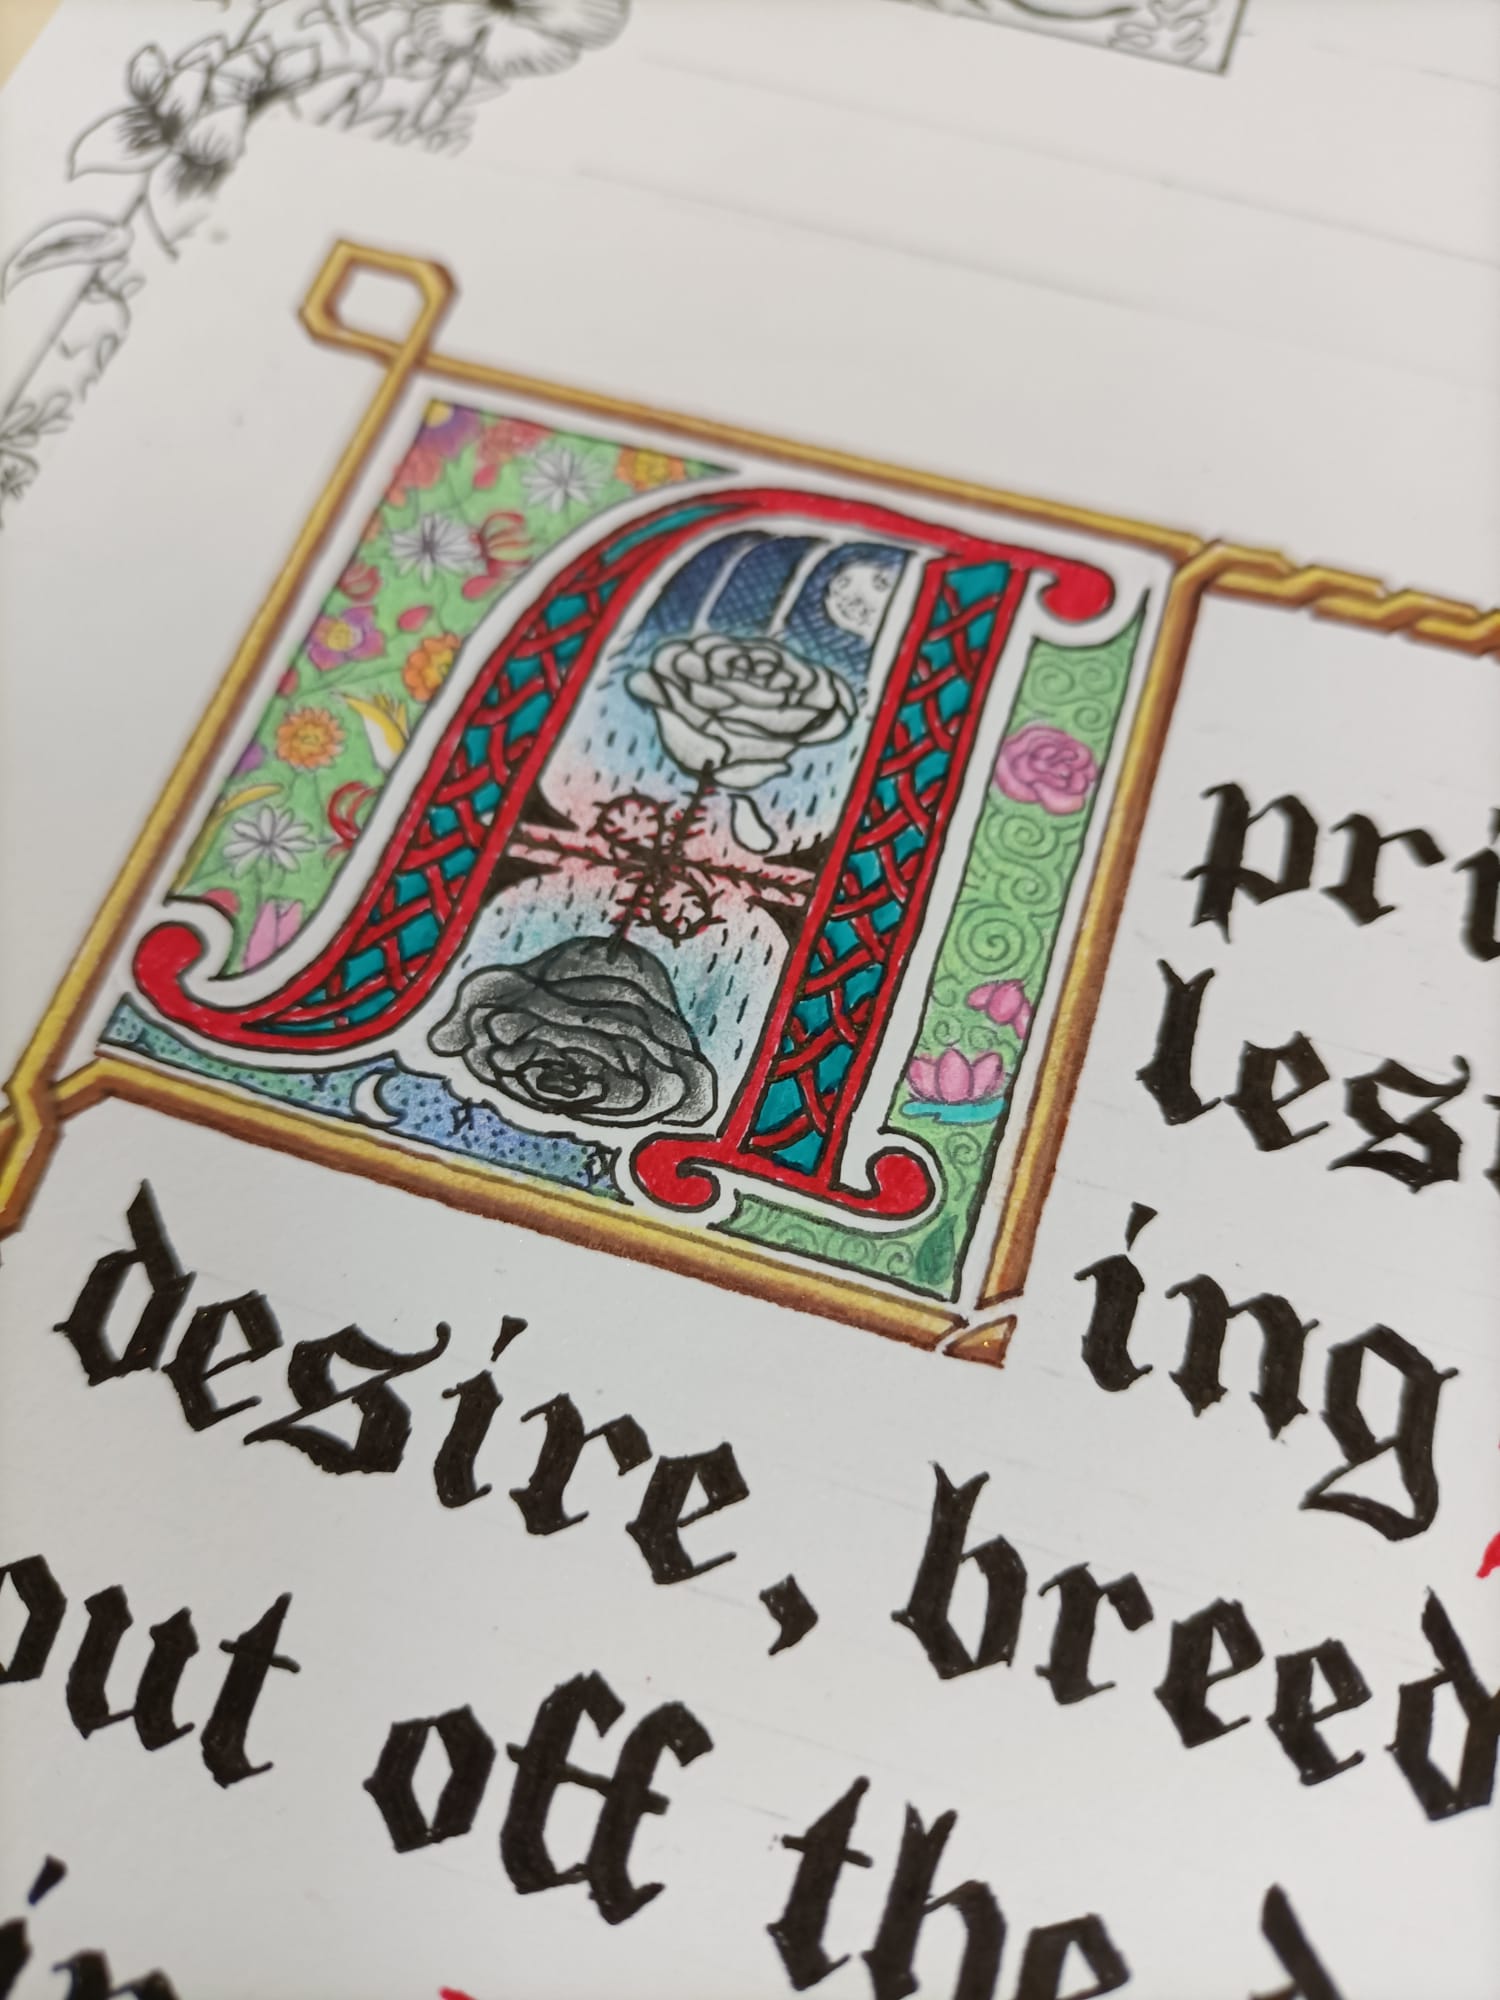 Apri
les
ing
desire, breed
out off the